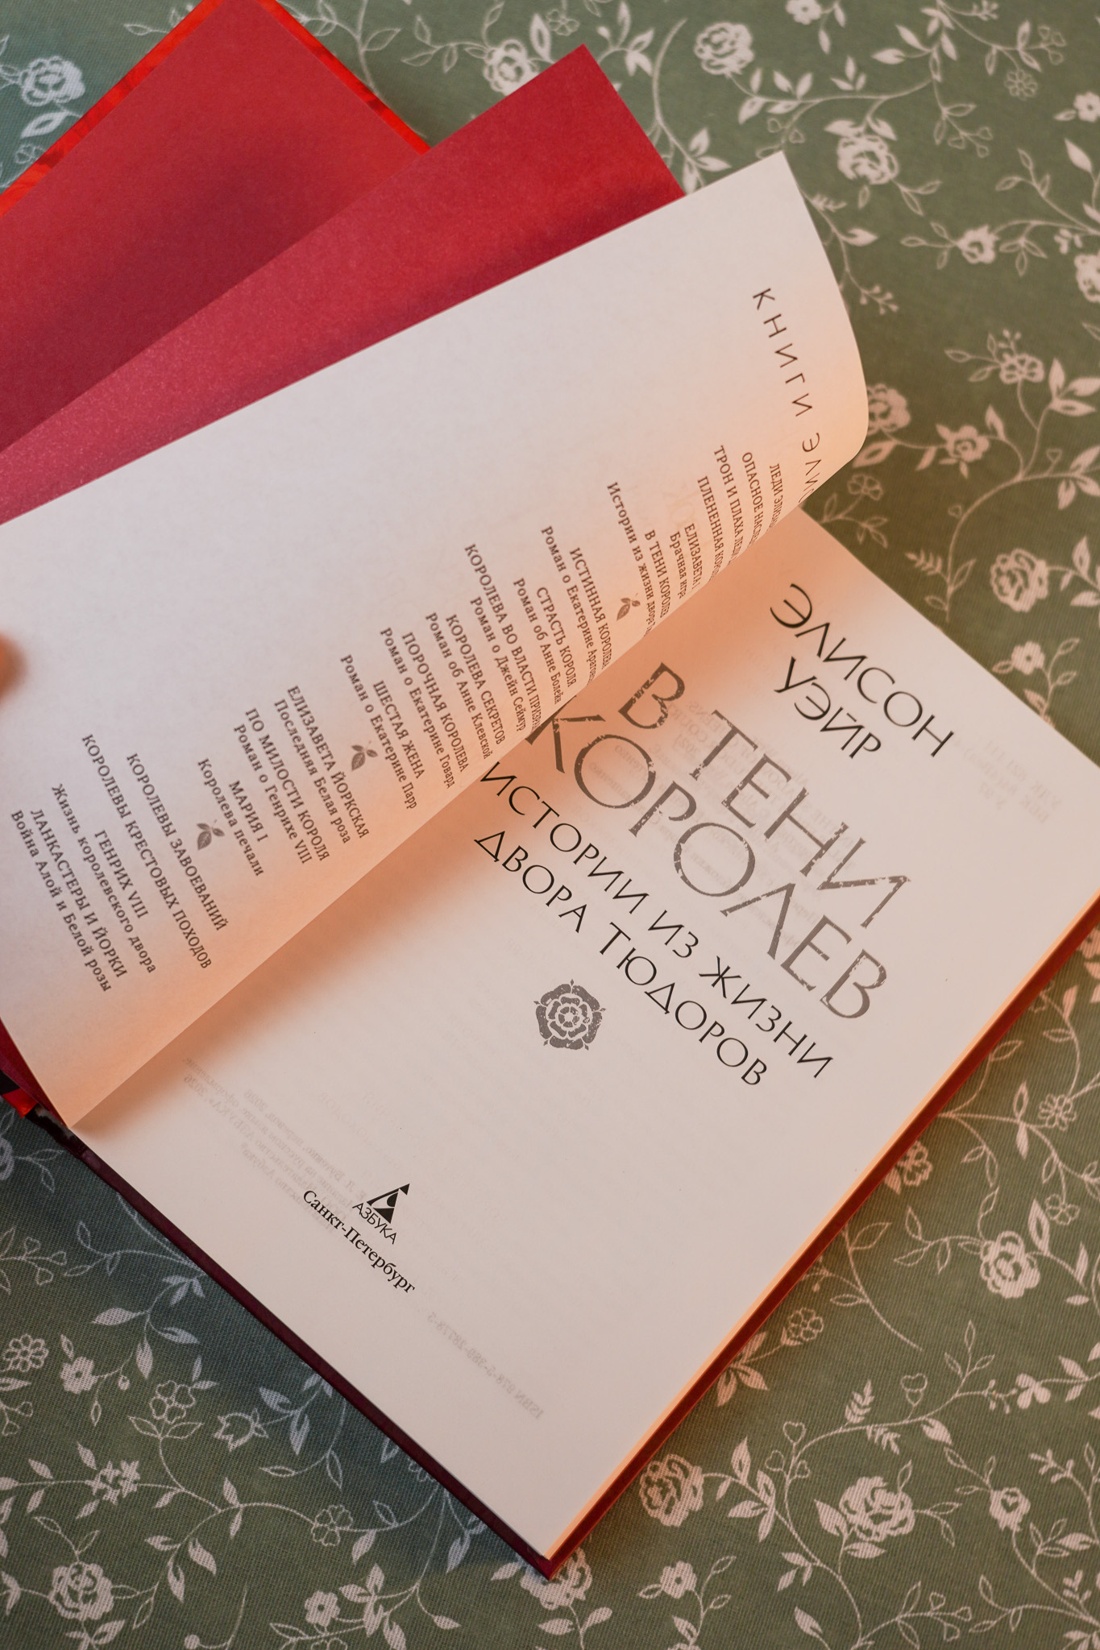 КНИГИ
ЛЕДИ
ОПАСНОЕ
ТРОН И ПЛАХА ЛЕДИ
ПЛЕНЕННАЯ
ЕЛИЗАВЕТА
Брачная игра
В ТЕНИ КОРОЛЕВ
Истории из жизни двора
ИСТИННАЯ КОРОЛЕВА
Роман о Екатерине
СТРАСТЬ КОРОЛЯ
Роман об Анне Болейн
КОРОЛЕВА ВО ВЛАСТИ
Роман о Джейн Сеймур
КОРОЛЕВА СЕКРЕТОВ
Роман об Анне Клевской
ПОРОЧНАЯ КОРОЛЕВА
Роман о Екатерине Говард
ШЕСТАЯ ЖЕНА
Роман о Екатерине Парр
ЕЛИЗАВЕТА ЙОРКСКАЯ
Последняя Белая роза
ПО МИЛОСТИ КОРОЛЯ
Роман о Генрихе VIII
МАРИЯ I
Королева печали
КОРОЛЕВЫ ЗАВОЕВАНИЙ
КОРОЛЕВЫ КРЕСТОВЫХ ПОХОДОВ
ГЕНРИХ VIII
Жизнь королевского двора
ЛАНКАСТЕРЫ И ЙОРКИ
Война Алой и Белой розы
ЭЛИСОН
УЭЙР
В ТЕНИ
КОРОЛЕВ
ИСТОРИИ ИЗ ЖИЗНИ
ДВОРА ТЮДОРОВ
АЗБУКА
Санкт-Петербург